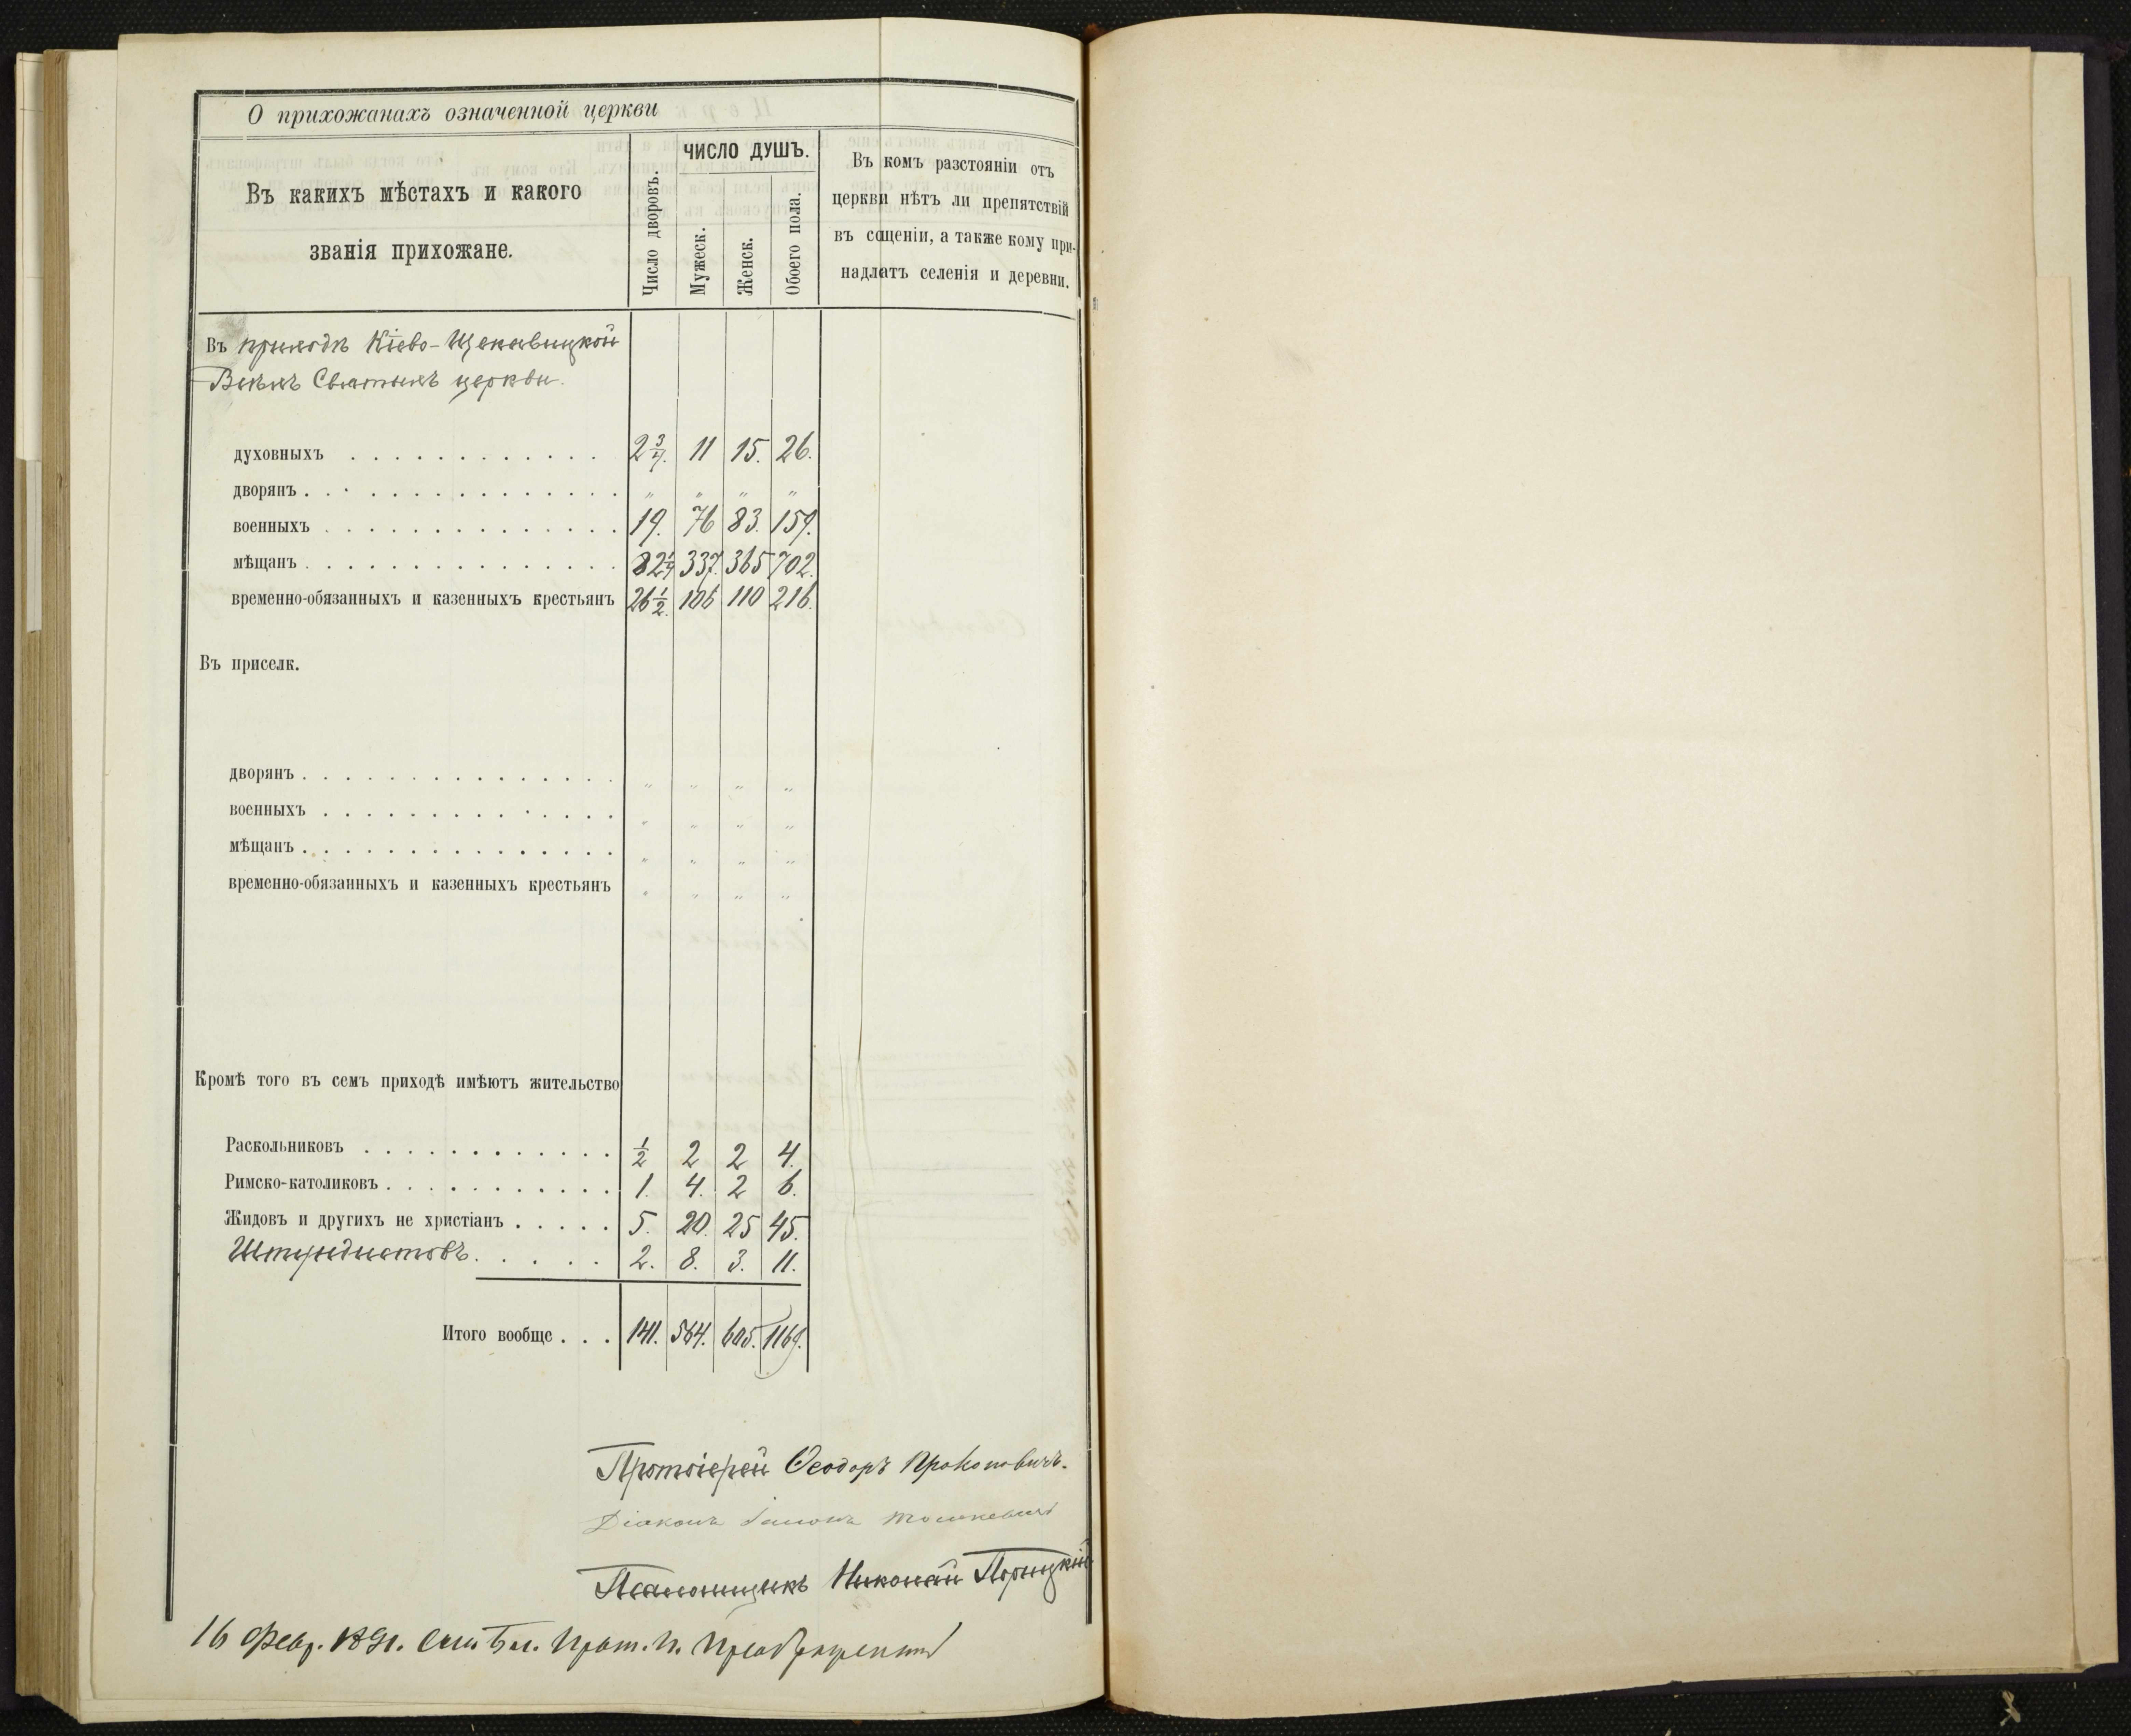 О прихожанахъ означенной церкви
Въ какихъ мѣстахъ и какого
званія прихожане.
Число дворовъ.
ЧИСЛО ДУШЪ.
Мужеск.
Женск.
Обоего пола.
Въ комъ разстояніи отъ
церкви нѣтъ ли препятствій
въ сщеніи, а также кому при-
надлатъ селенія и деревни.
Въ приходѣ Кіево-Щекавицкой
Всѣхъ Святыхъ церкви.
духовныхъ . . . . . . . . . . . . 2 3/4. 11 15. 26.
дворянъ . . . . . . . . . . . . . . . " " " "
военныхъ . . . . . . . . . . . . . . 19. 76 83. 159.
мѣщанъ . . . . . . . . . . . . . . . 82 1/4 337. 365 702.
временно-обязанныхъ и казенныхъ крестьянъ 26 1/2. 106 110 216.
Въ приселк.
дворянъ . . . . . . . . . . . . . . . " " " "
военныхъ . . . . . . . . . . . . . . " " " "
мѣщанъ . . . . . . . . . . . . . . . " " " "
временно-обязанныхъ и казенныхъ крестьянъ " " " "
Кромѣ того въ семъ приходѣ имѣютъ жительство
Раскольниковъ . . . . . . . . . . . . 1/2 2 2 4.
Римско-католиковъ . . . . . . . . . . . 1. 4. 2 6.
Жидовъ и другихъ не христіанъ . . . . . 5. 20. 25 45.
Штундистовъ . . . . . 2. 8. 3. 11.
Итого вообще . . . 141. 564. 605. 1169.
Протоіерей Ѳеодоръ Прокоповичъ.
Діаконъ
Псаломщикъ Николай Порицкій
16 Февр. 1891. Бл. Прот. П. Преображенскій